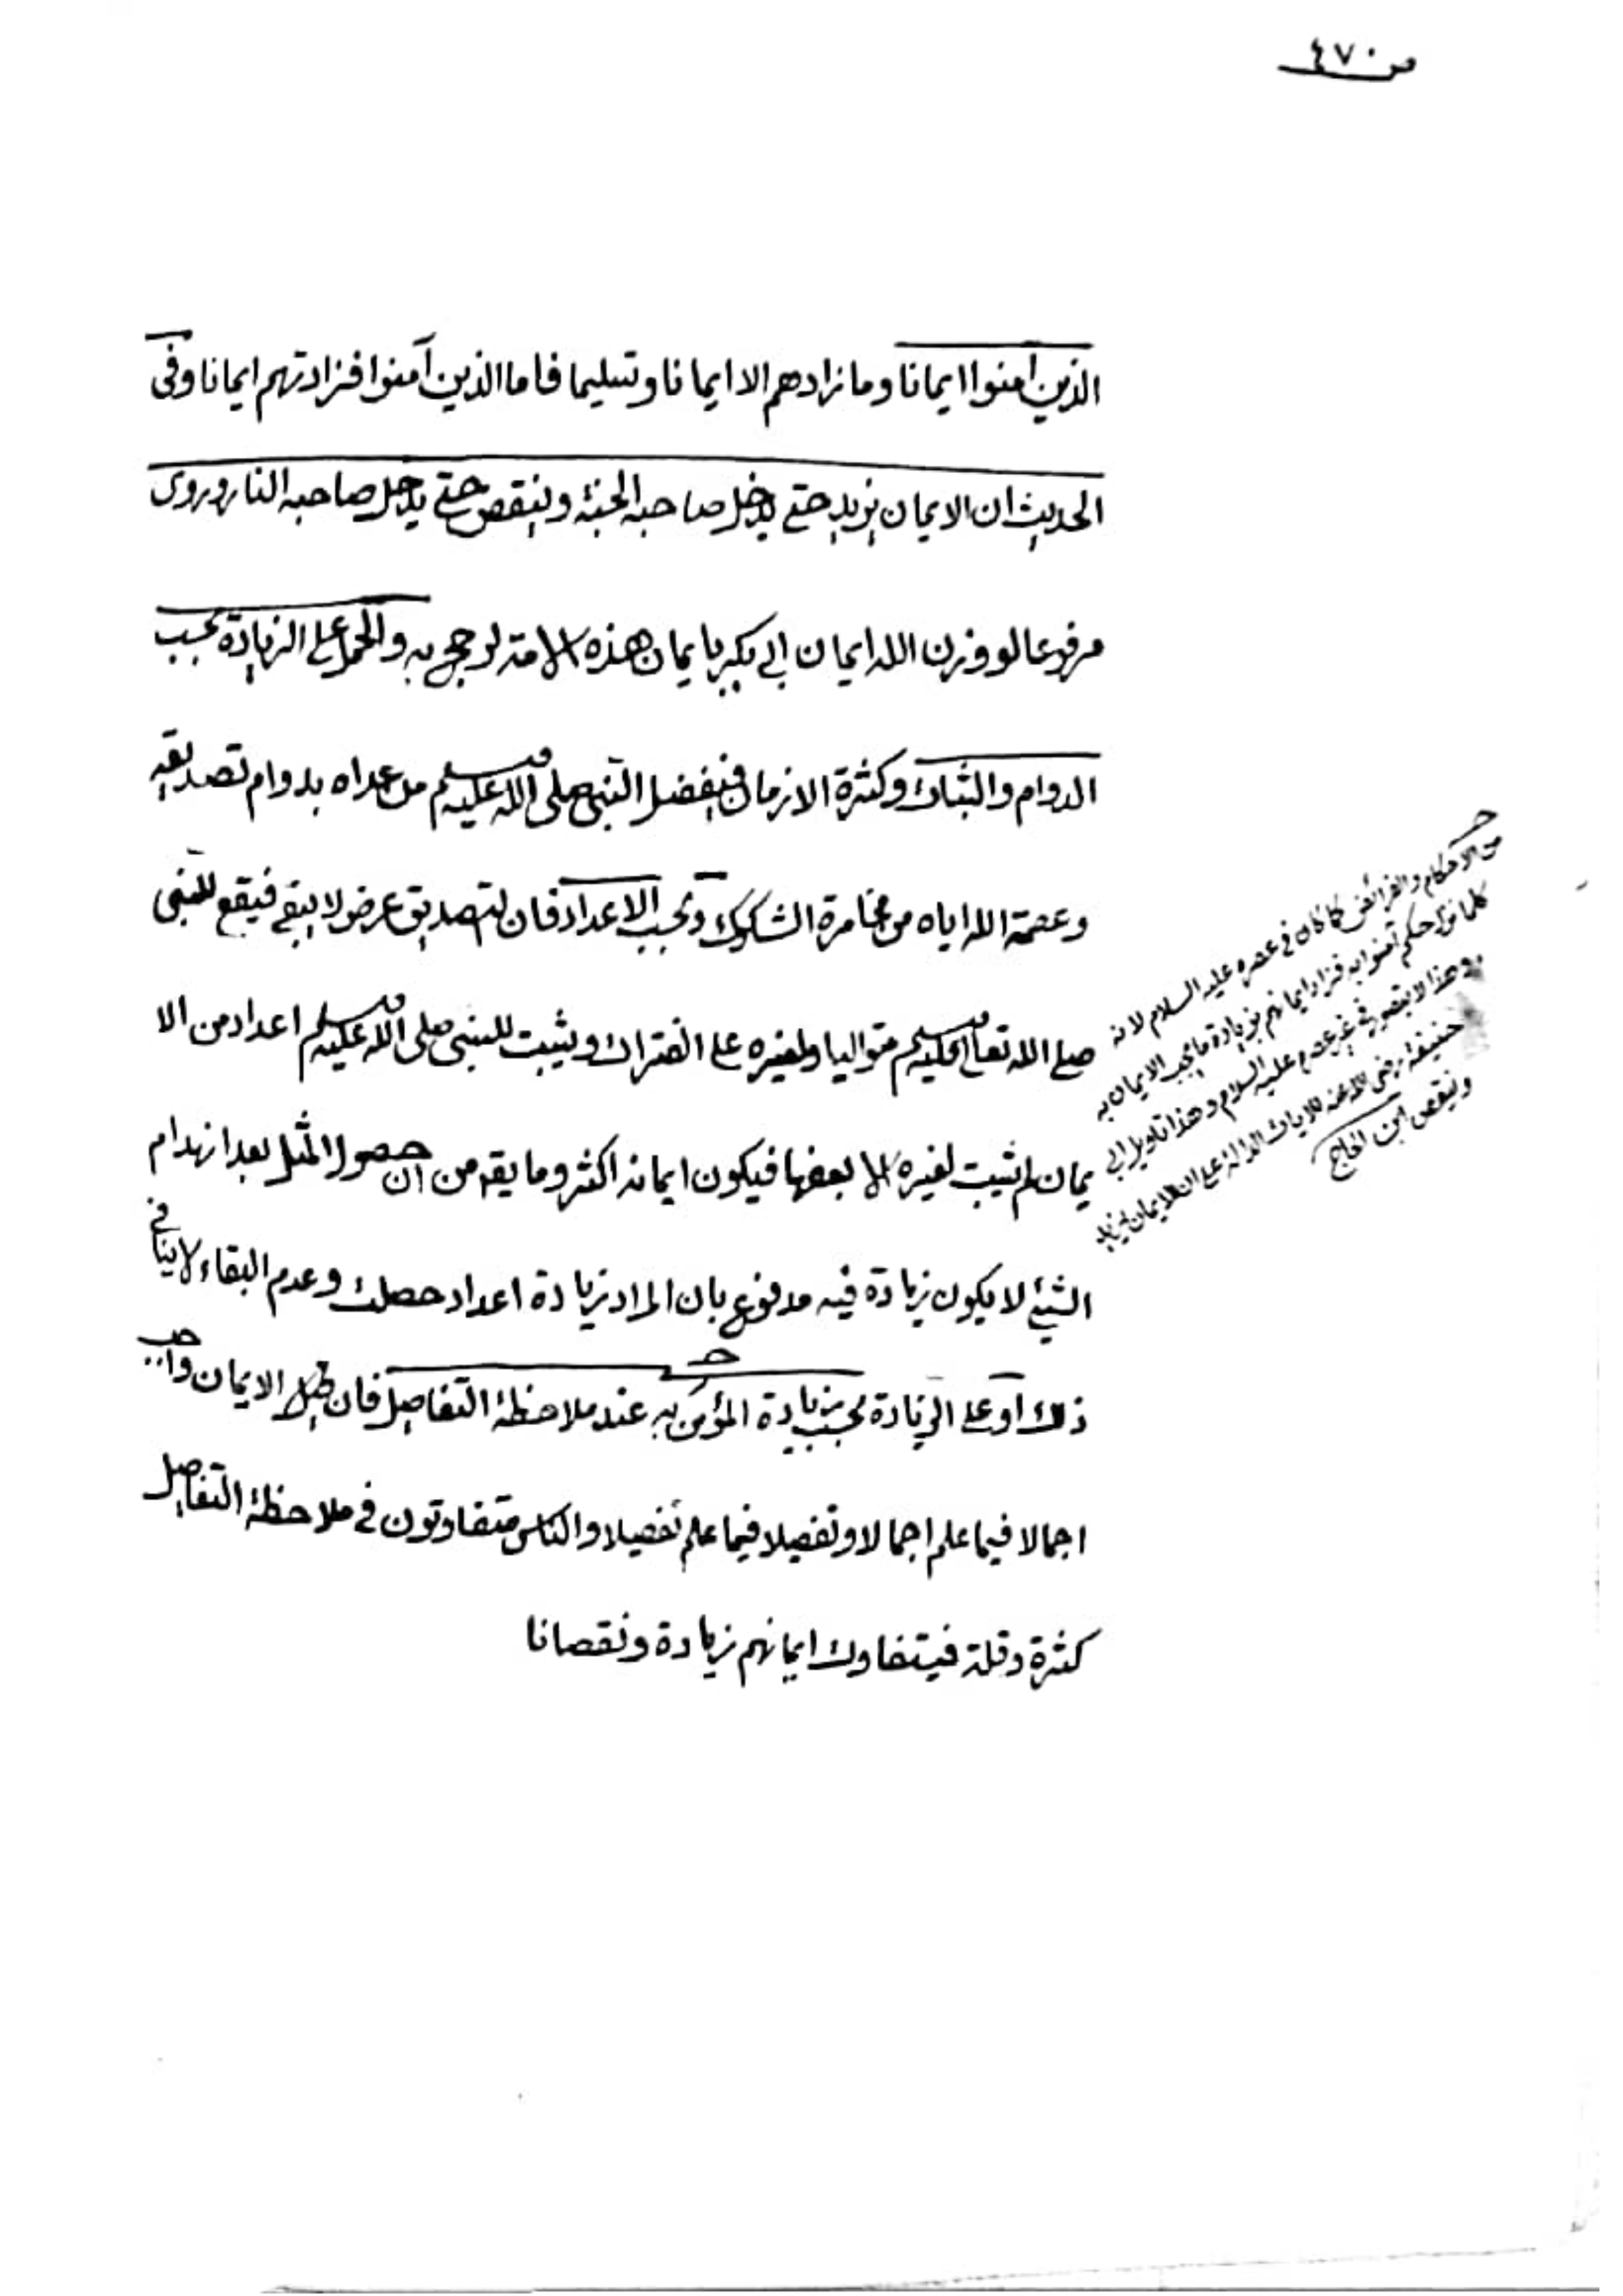 ص ٤٧٠
الذين امنوا ايمانا وما زادهم الا ايمانا وتسليما فاما الذين آمنوا فزادتهم ايمانا وفى
الحديث ان الايمان يزيد حتى يدخل صاحبه الجنة وينقص حتى يدخل صاحبه النار وروى
مرفوعا لو وزن الله ايمان ابى بكر بايمان هذه الامة لرجح به والحمل على الزيادة بحسب
الدوام والثبات وكثرة الازمان فيفضل النبى صلى الله عليه وسلم من عداه بدوام تصديقه
وعصمة الله اياه من مخامرة الشكوك وبحسب الاعداد فان التصديق عرض لا يبقى فيقع للنبى
صلى الله تعالى عليه وسلم متواليا ولغيره على الفترات ويثبت للنبى صلى الله عليه وسلم اعداد من الا
يمان لم يثبت لغيره الا بعضها فيكون ايمانه اكثر وما يقر من ان حصول المثل بعد انهدام
الشيئ لا يكون زيادة فيه مدفوع بان المراد زيادة اعداد حصلت وعدم البقاء لا ينافى
ذلك او على الزيادة بحسب زيادة المؤمن به عند ملاحظة التفاصيل فان الايمان واجب
اجمالا فيما علم اجمالا وتفصيلا فيما علم تفصيلا والناس متفاوتون فى ملاحظة التفاصيل
كثرة وقلة فيتفاوت ايمانهم زيادة ونقصانا
من الاحكام والفرائض كما كان فى عصره عليه السلام لانه
كلما نزل حكم آمنوا به فزاد ايمانهم بزيادة ما يجب الايمان به
وهذا لا يتصور فى غير عصره عليه السلام وهذا تاويل ابى
حنيفة رضى الله عنه للايات الدالة على ان الايمان يزيد
وينقص ابن الحاج